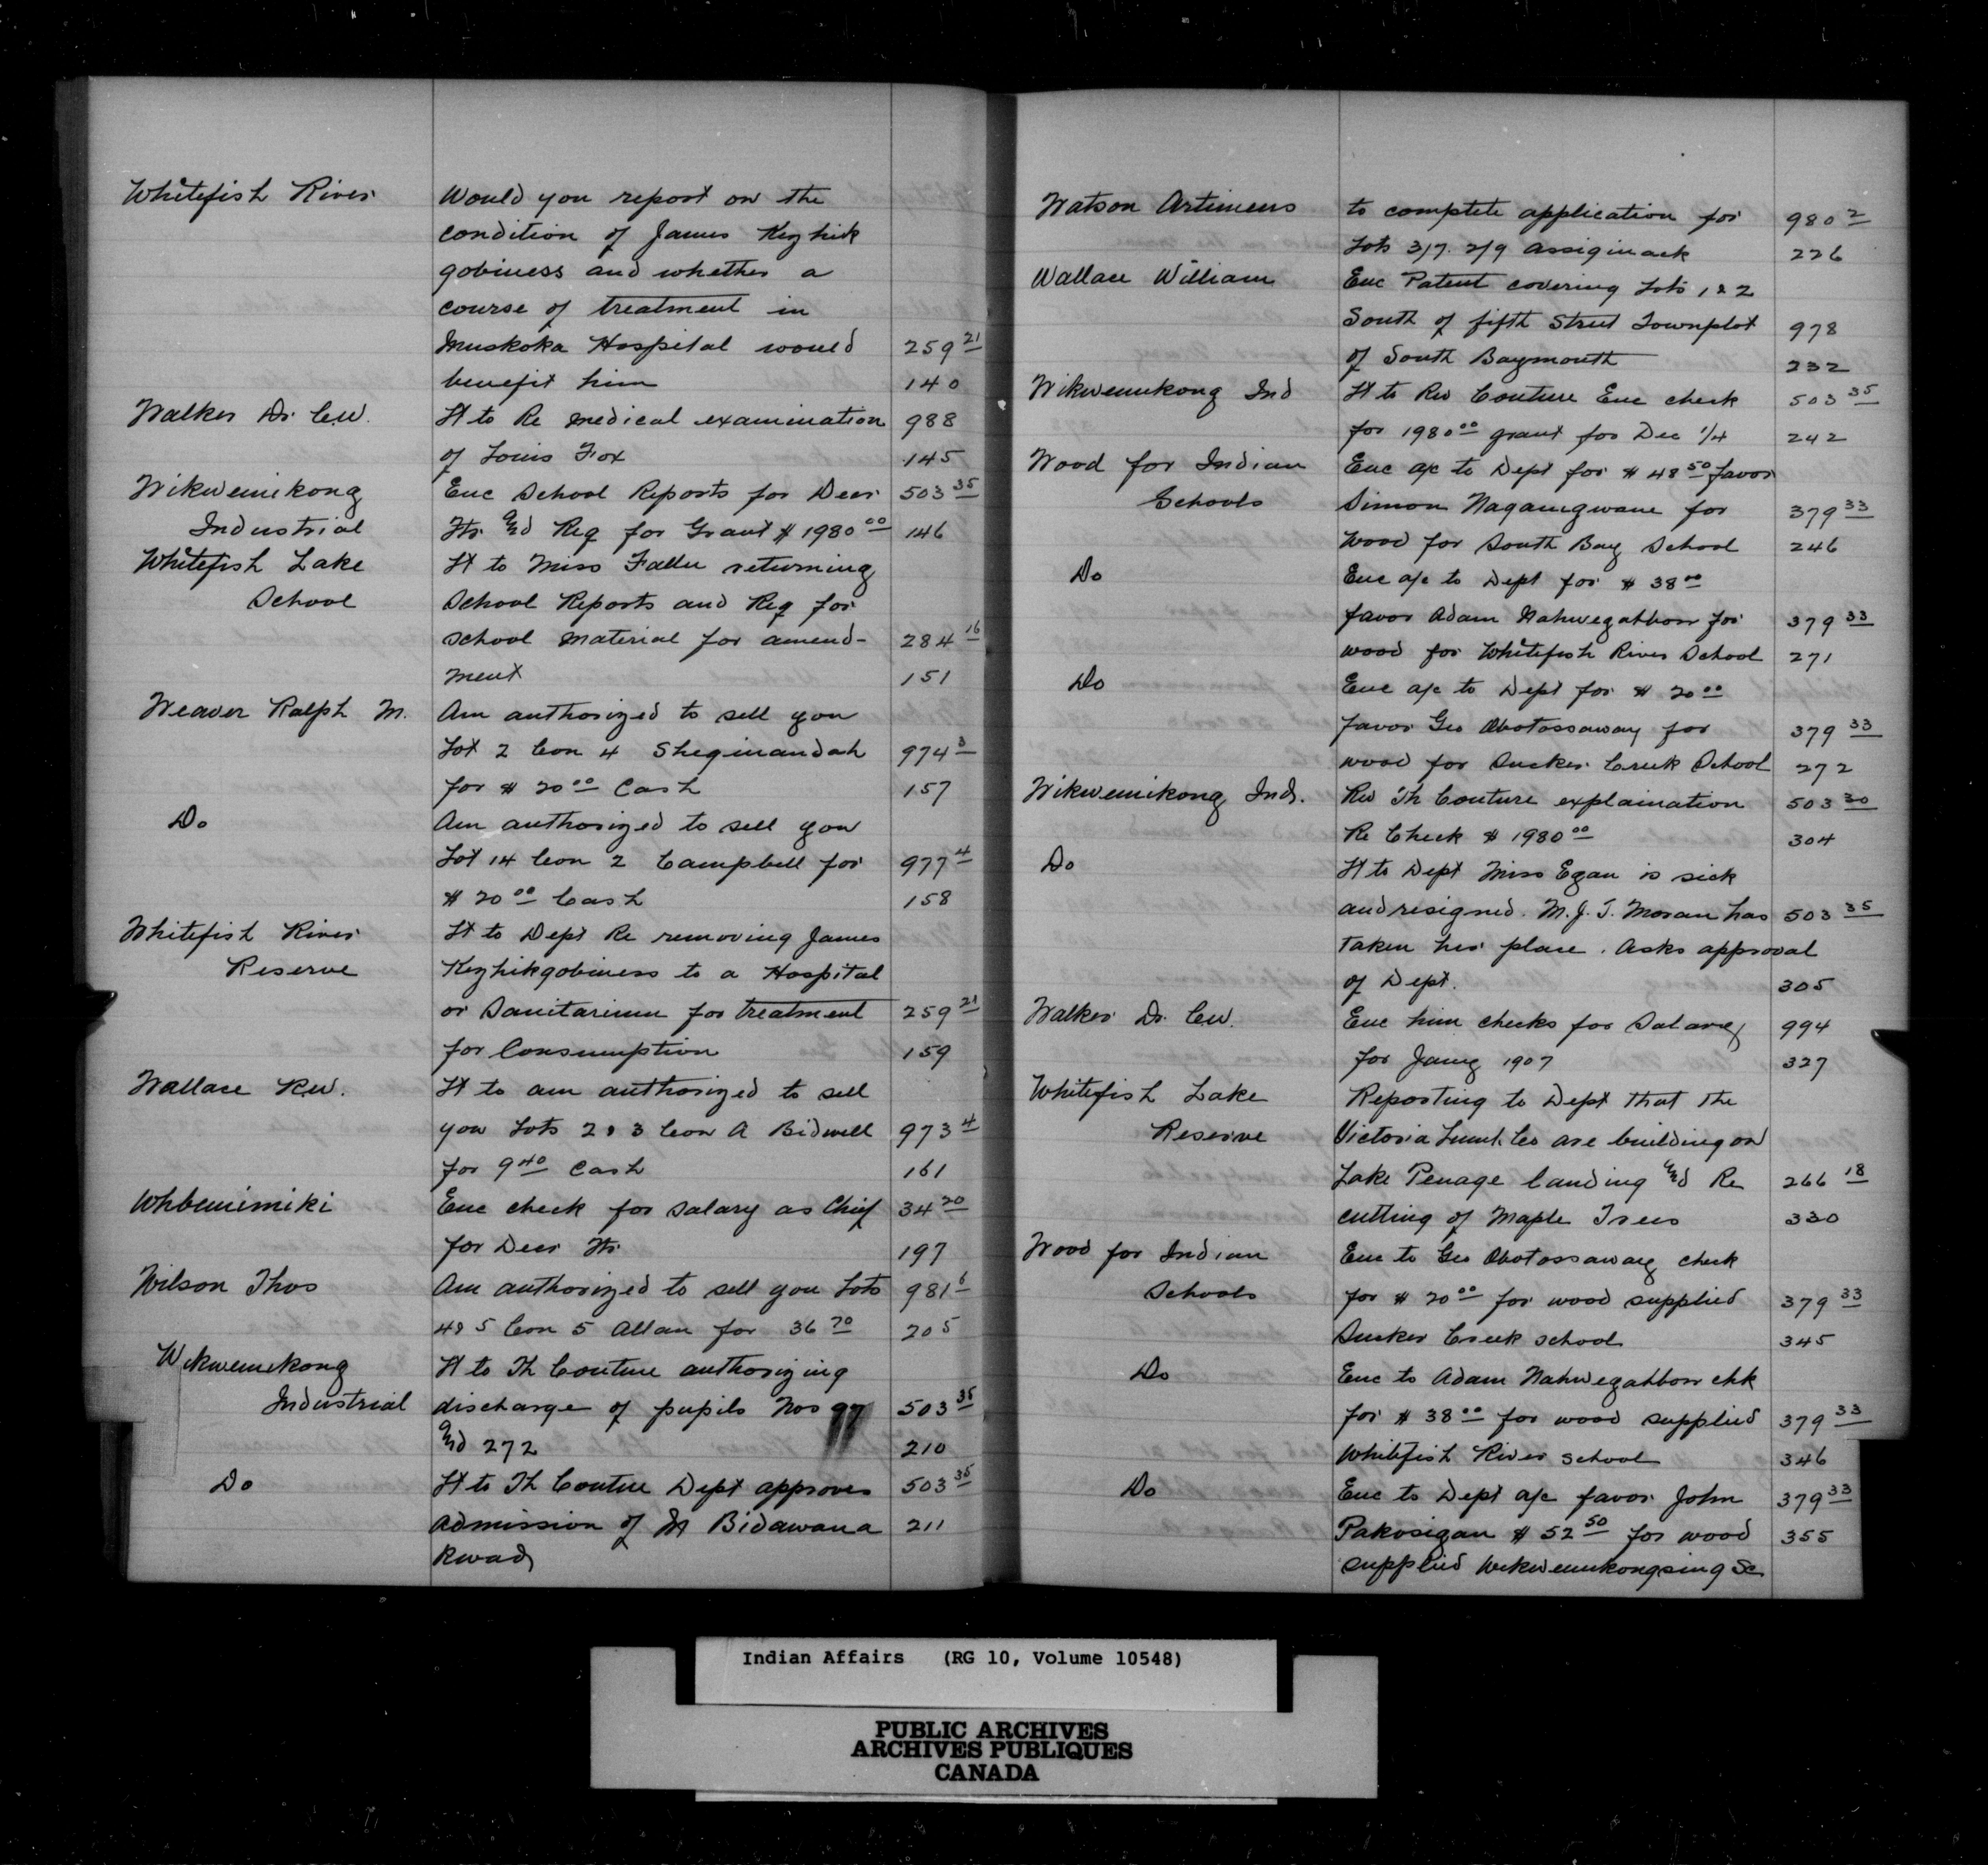 Whitefish River Would you report on the
condition of James Kezhik
gobiness and whether a
course of treatment in
Muskoka Hospital would 259 21
benefit him 140
Walker Dr. C.W. Lt to Re medical examination 988
of Louis Fox 145
Wikwemikong Enc School Reports for Decr 503 35
Industrial Qtr. and Req for Grant $ 1980 00 146
Whitefish Lake Lt to Miss Faller returning
School School Reports and Req for
school material for amend- 284 16
ment 151
Weaver Ralph M. Am authorized to sell you
Lot 2 Con 4 Sheguiandah 974 3
for $ 20 00 Cash 157
Do Am authorized to sell you
Lot 14 Con 2 Campbell for 977 4
$ 20 00 Cash 158
Whitefish River Lt to Dept Re removing James
Reserve Kezhikgobiness to a Hospital
or Sanitarium for treatment 259 21
for Consumption 159
Wallace R.W. Lt to am authorized to sell
you Lots 2 & 3 Con A Bidwell 973 4
for 9 40 Cash 161
Wabemimiki Enc check for salary as Chief 34 20
for Decr Qtr. 197
Wilson Thos Am authorized to sell you Lots 981 6
4 & 5 Con 5 Allan for 36 70 205
Wikwemikong Lt to Th Couture authorizing
Industrial discharge of pupils Nos 503 35
and 272 210
Do Lt to Th Couture Dept approves 503 35
admission of Bidawana 211
kwad
Watson Artimeus to complete application for 980 2
Lots 3/7. 2/9 Assiginack 226
Wallace William Enc Patent covering Lots 1 & 2
South of fifth Street Townplot 978
of South Baymouth 232
Wikwemikong Ind Lt to Rev Couture Enc check 503 35
for 1980 00 grant for Dec 1/4 242
Wood for Indian Enc a/c to Dept for $ 48 50 favor
Schools Simon Naganegwane for 379 33
Wood for South Bay School 246
Do Enc a/c to Dept for $ 38 00
favor Adam Nahwegahbow for 379 33
wood for Whitefish River School 271
Do Enc a/c to Dept for $ 20 00
favor Geo Abotossaway for 379 33
wood for Sucker Creek School 272
Wikwemikong Ind. Rev Th Couture explaination 503 30
Re Check $ 1980 00 304
Do Lt to Dept Miss Egan is sick
and resigned. M.J.T. Moran has 503 35
taken her place. Asks approval
of Dept. 305
Walker Dr. C.W. Enc him checks for Salary 994
for Jany 1907 327
Whitefish Lake Reporting to Dept that the
Reserve Victoria Lumb. Co are building on
Lake Penage landing and Re 266 18
cutting of Maple Trees 330
Wood for Indian Enc to Geo Abotossaway check
Schools for $ 20 00 for wood supplied 379 33
Sucker Creek school 345
Do Enc to Adam Nahwegahbow chk
for $ 38 00 for wood supplied 379 33
Whitefish River school 346
Do Enc to Dept a/c favor John 379 33
Pakosigan $ 52 50 for wood 355
supplied Wekwemikongsing Sc
Indian Affairs (RG 10, Volume 10548)
PUBLIC ARCHIVES
ARCHIVES PUBLIQUES
CANADA